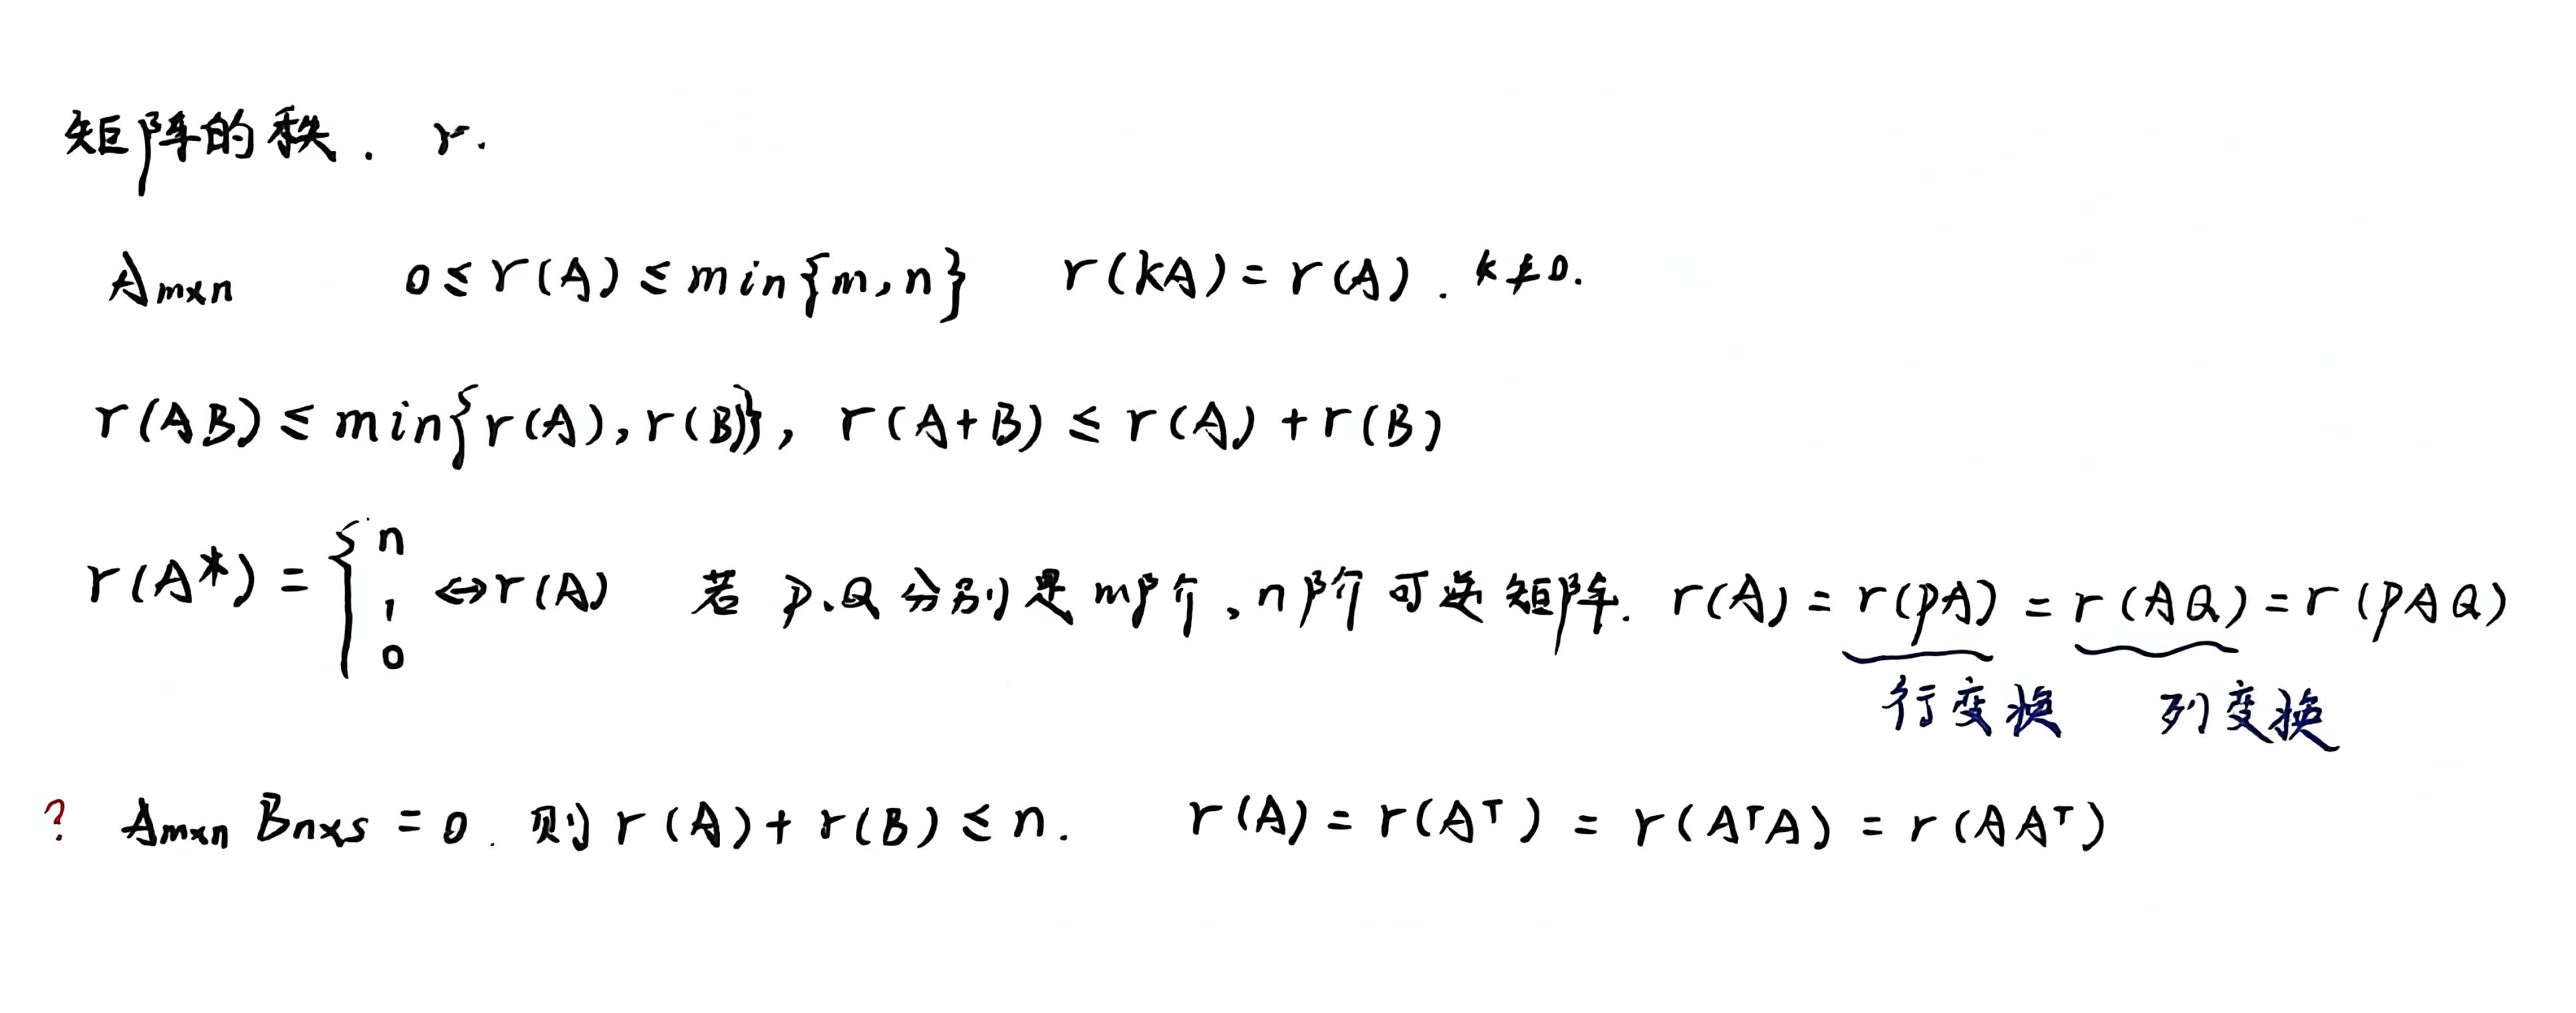 矩阵的秩. r.
A_{m×n} 0≤r(A)≤min{m,n} r(kA)=r(A). k≠0.
r(AB)≤min{r(A),r(B)}, r(A+B)≤r(A)+r(B)
r(A*)={n 1 0 ⇔r(A) 若P.Q分别是m阶,n阶可逆矩阵. r(A)=r(PA)=r(AQ)=r(PAQ)
行变换 列变换
? A_{m×n} B_{n×s}=0. 则r(A)+r(B)≤n. r(A)=r(A^T)=r(A^TA)=r(AA^T)